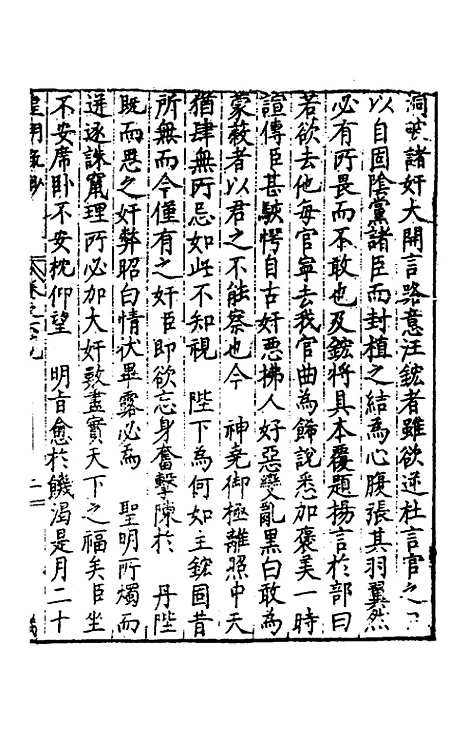 洞或諸奸大開言路意汪鋐者雖欲逆杜言官之口
以自固陰黨諸臣而封植之結為心腹張其羽翼然
必有所畏而不敢也及鋐將具本覆題揚言於部曰
若欲去他每官寧去我官曲為餙說悉加褒美一時
諠傳臣甚駭愕自古奸悪拂人好惡變亂黑白敢為
蒙蔽者以君之不能察也今 神堯御極離照中天
猶肆無所忌如此不知視 陛下為何如主鋐固昔
所無而今僅有之奸臣即欲忘身奮擊陳於 丹陛
既而思之奸弊昭白情伏畢露必為 聖明所燭而
迸逐誅竄理所必加大奸斁盡實天下之福矣臣坐
不安席卧不安枕仰望 明旨愈於饑渴是月二十
皇明 二